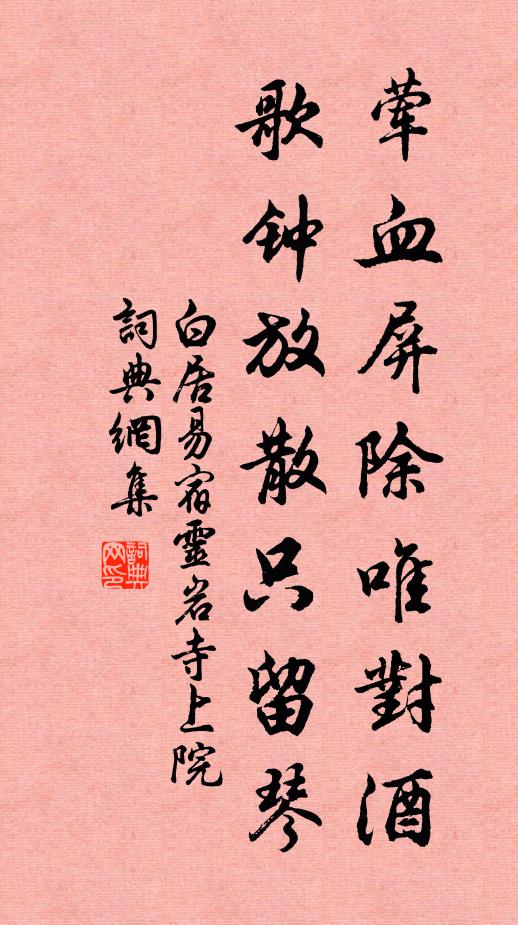 荤血屏除唯對酒
歌钟放散只留琴
白居易宿靈岩寺上院
詞典網集
詞典网印